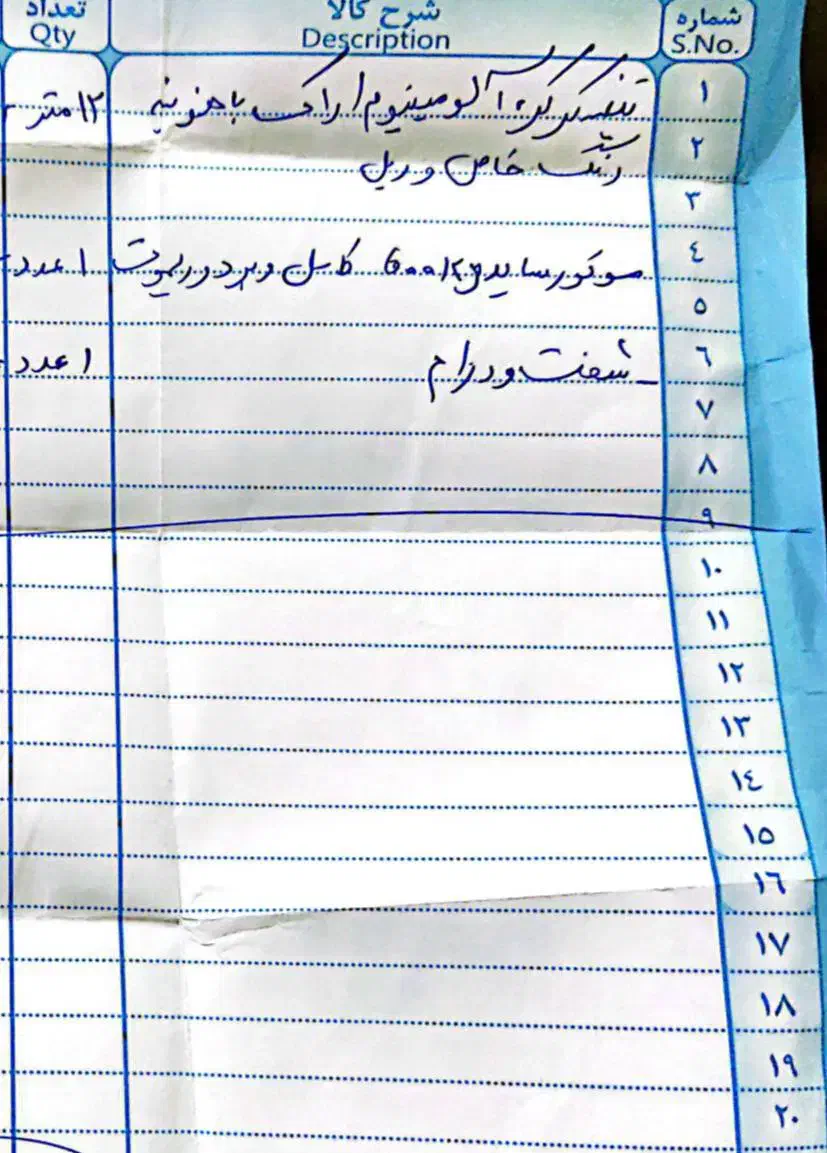 شماره شرح کالا تعداد
S.No. Description Qty
۱ تیغه کرکره آلومینیوم اراک با ۱۲ متر
۲ رنگ خاص و ریل
۳
٤ موتور ساید 600kg کامل و برد و ریموت ۱ عدد
٥
٦ شفت و درام ۱ عدد
۷
۸
۹
۱۰
۱۱
۱۲
۱۳
۱٤
۱٥
۱٦
۱۷
۱۸
۱۹
۲۰